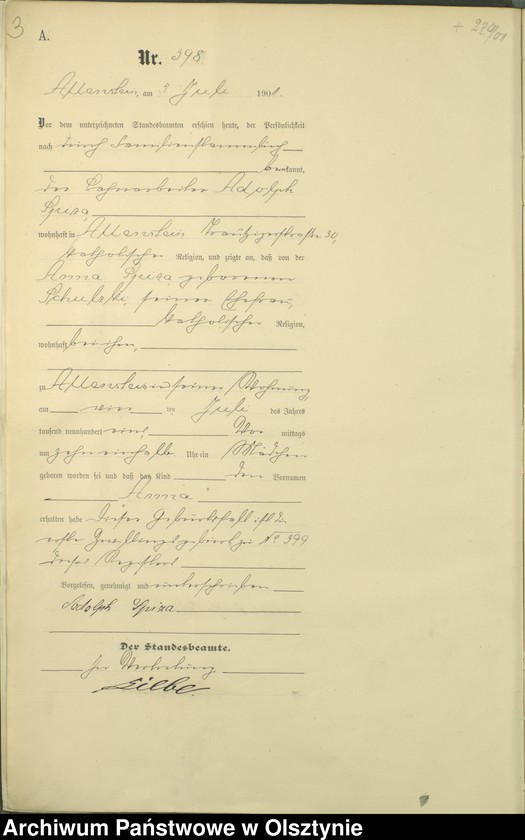 3
+ 279/01
A.
Nr. 398
Allenstein, am 3 Juli 1901.
Vor dem unterzeichneten Standesbeamten erschien heute, der Persönlichkeit
nach durch Familienstammbuch
bekannt,
der Bahnarbeiter Adolph
Spiza
wohnhaft in Allenstein Trautzigerstraße 30,
katholischer Religion, und zeigte an, daß von der
Anna Spiza geborenen
seiner Ehefrau,
katholischer Religion,
wohnhaft bei ihm,
zu Allenstein in seiner Wohnung,
am ein ten Juli des Jahres
tausend neunhundert eins, Vor mittags
um zehn einhalb Uhr ein Mädchen
geboren worden sei und daß das Kind den Vornamen
Anna
erhalten habe Dieser Geburtsfall ist d.
erste Zwillingsgeburt zu No 399
dieses Registers
Vorgelesen, genehmigt und unterschrieben
Adolph Spiza
Der Standesbeamte.
In Vertretung
Archiwum Państwowe w Olsztynie